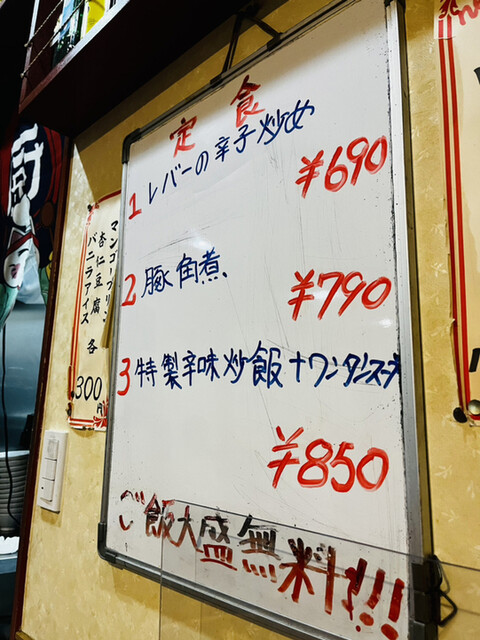 定食
1 レバーの辛子炒め
¥690
2 豚角煮
¥790
3 特製辛味炒飯+ワンタンスープ
¥850
ご飯大盛無料!!!
マンゴープリン
杏仁豆腐
バニラアイス
各300円
厨